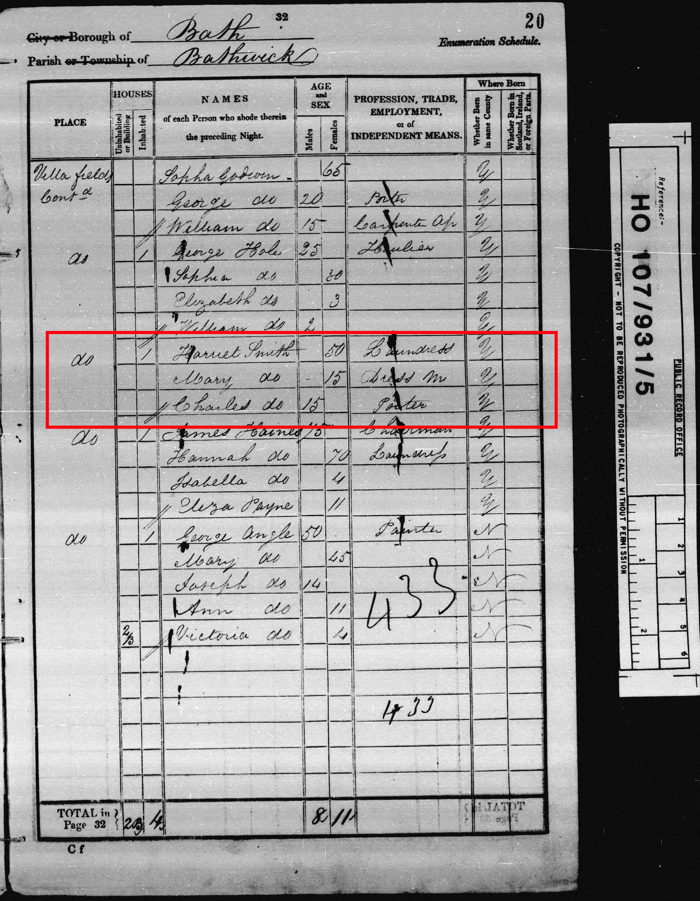 32
20
City or Borough of Bath
Enumeration Schedule.
Parish or Township of Bathwick
PLACE HOUSES NAMES of each Person who abode therein the preceding Night. AGE and SEX PROFESSION, TRADE, EMPLOYMENT, or of INDEPENDENT MEANS. Where Born
Uninhabited or Building Inhabited Males Females Whether Born in same County Whether Born in Scotland, Ireland, or Foreign Parts.
Villa fields Sopha Godwin 65 Y
Cont.d George do 20 Porter Y
William do 15 Carpenter Ap Y
do 1 George Hole 25 Haulier Y
Sophia do 30 Y
Elizabeth do 3 Y
William do 2 Y
do 1 Harriet Smith 50 Laundress Y
Mary do 15 Dress M Y
Charles do 15 Porter Y
do 1 James Haines 75 Chairman Y
Hannah do 70 Laundress Y
Isabella do 4 Y
Eliza Payne 11 Y
do 1 George Angle 50 Painter N
Mary do 45 N
Joseph do 14 N
Ann do 11 N
433
Victoria do 4 N
433
TOTAL in Page 32 2B 4 8 11
C f
Reference:-
HO 107/931/5
PUBLIC RECORD OFFICE
COPYRIGHT - NOT TO BE REPRODUCED PHOTOGRAPHICALLY WITHOUT PERMISSION
1
2
1
2
3
4
5
6